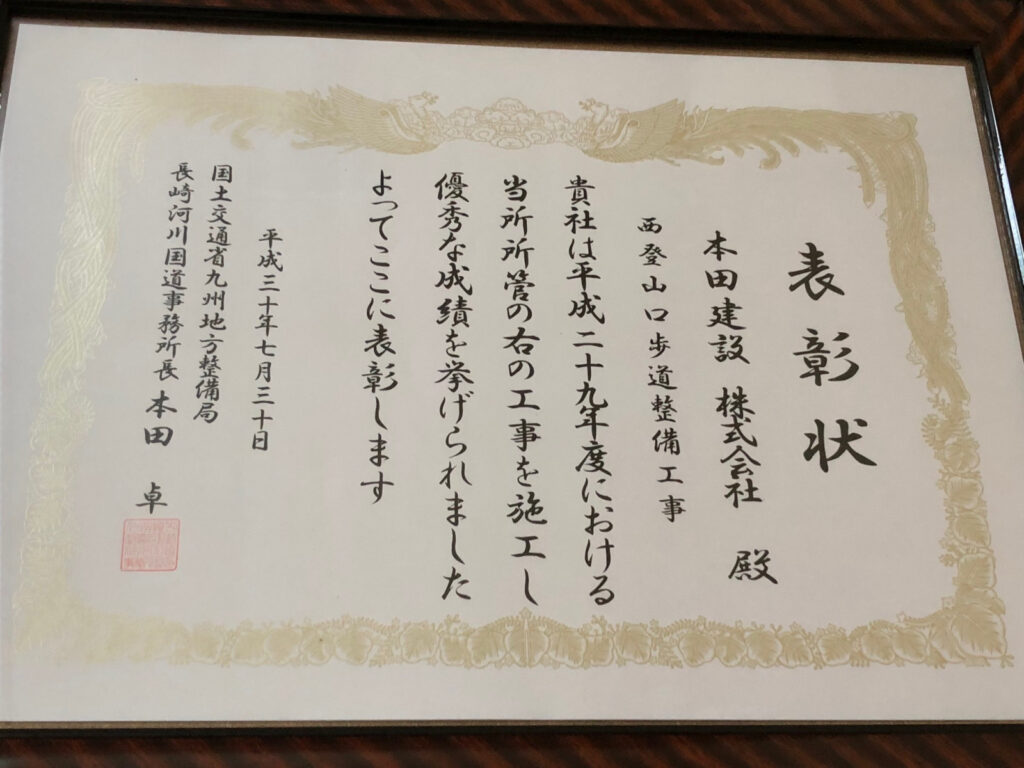 表彰状
本田建設 株式会社 殿
西登山口歩道整備工事
貴社は平成二十九年度における
当所所管の右の工事を施工し
優秀な成績を挙げられました
よってここに表彰します
平成三十年七月三十日
国土交通省九州地方整備局
長崎河川国道事務所長 本田 卓